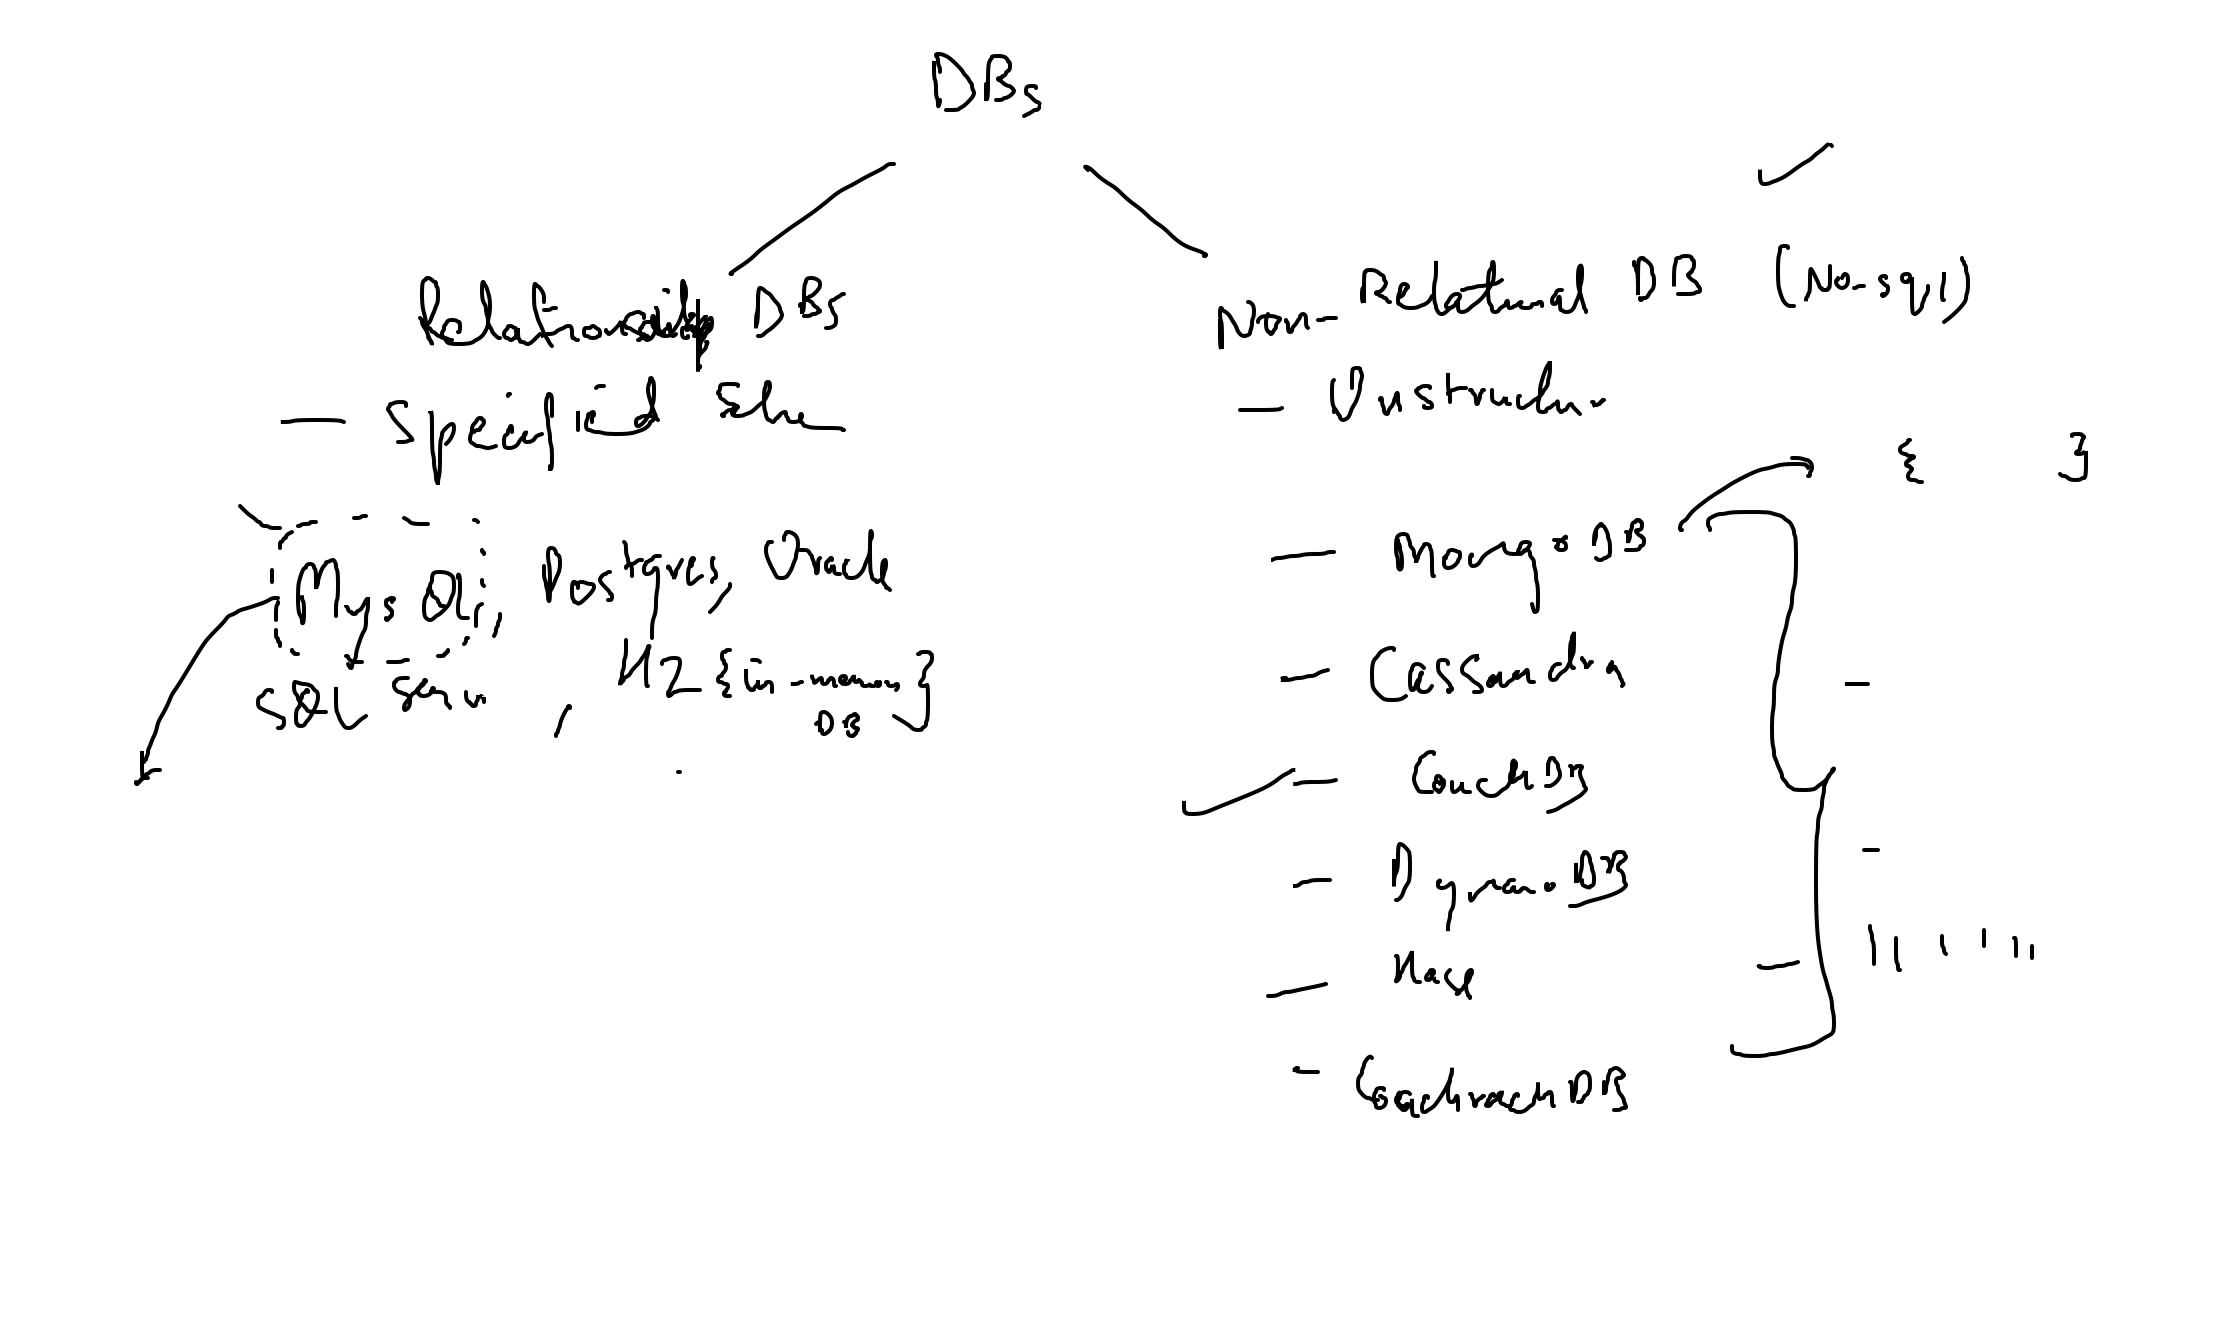 DBs
Relationship DBs
- Specified Sche
MySQL, Postgres, Oracle
SQL Serv , H2 {in-memory DB}
Non-Relational DB (No-sql)
- Unstructur
{ }
- MongoDB
- Cassandra
- CouchDB
- DynamoDB
-
- CoachroachDB